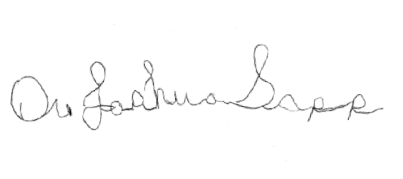 Dr Joshua Sapp